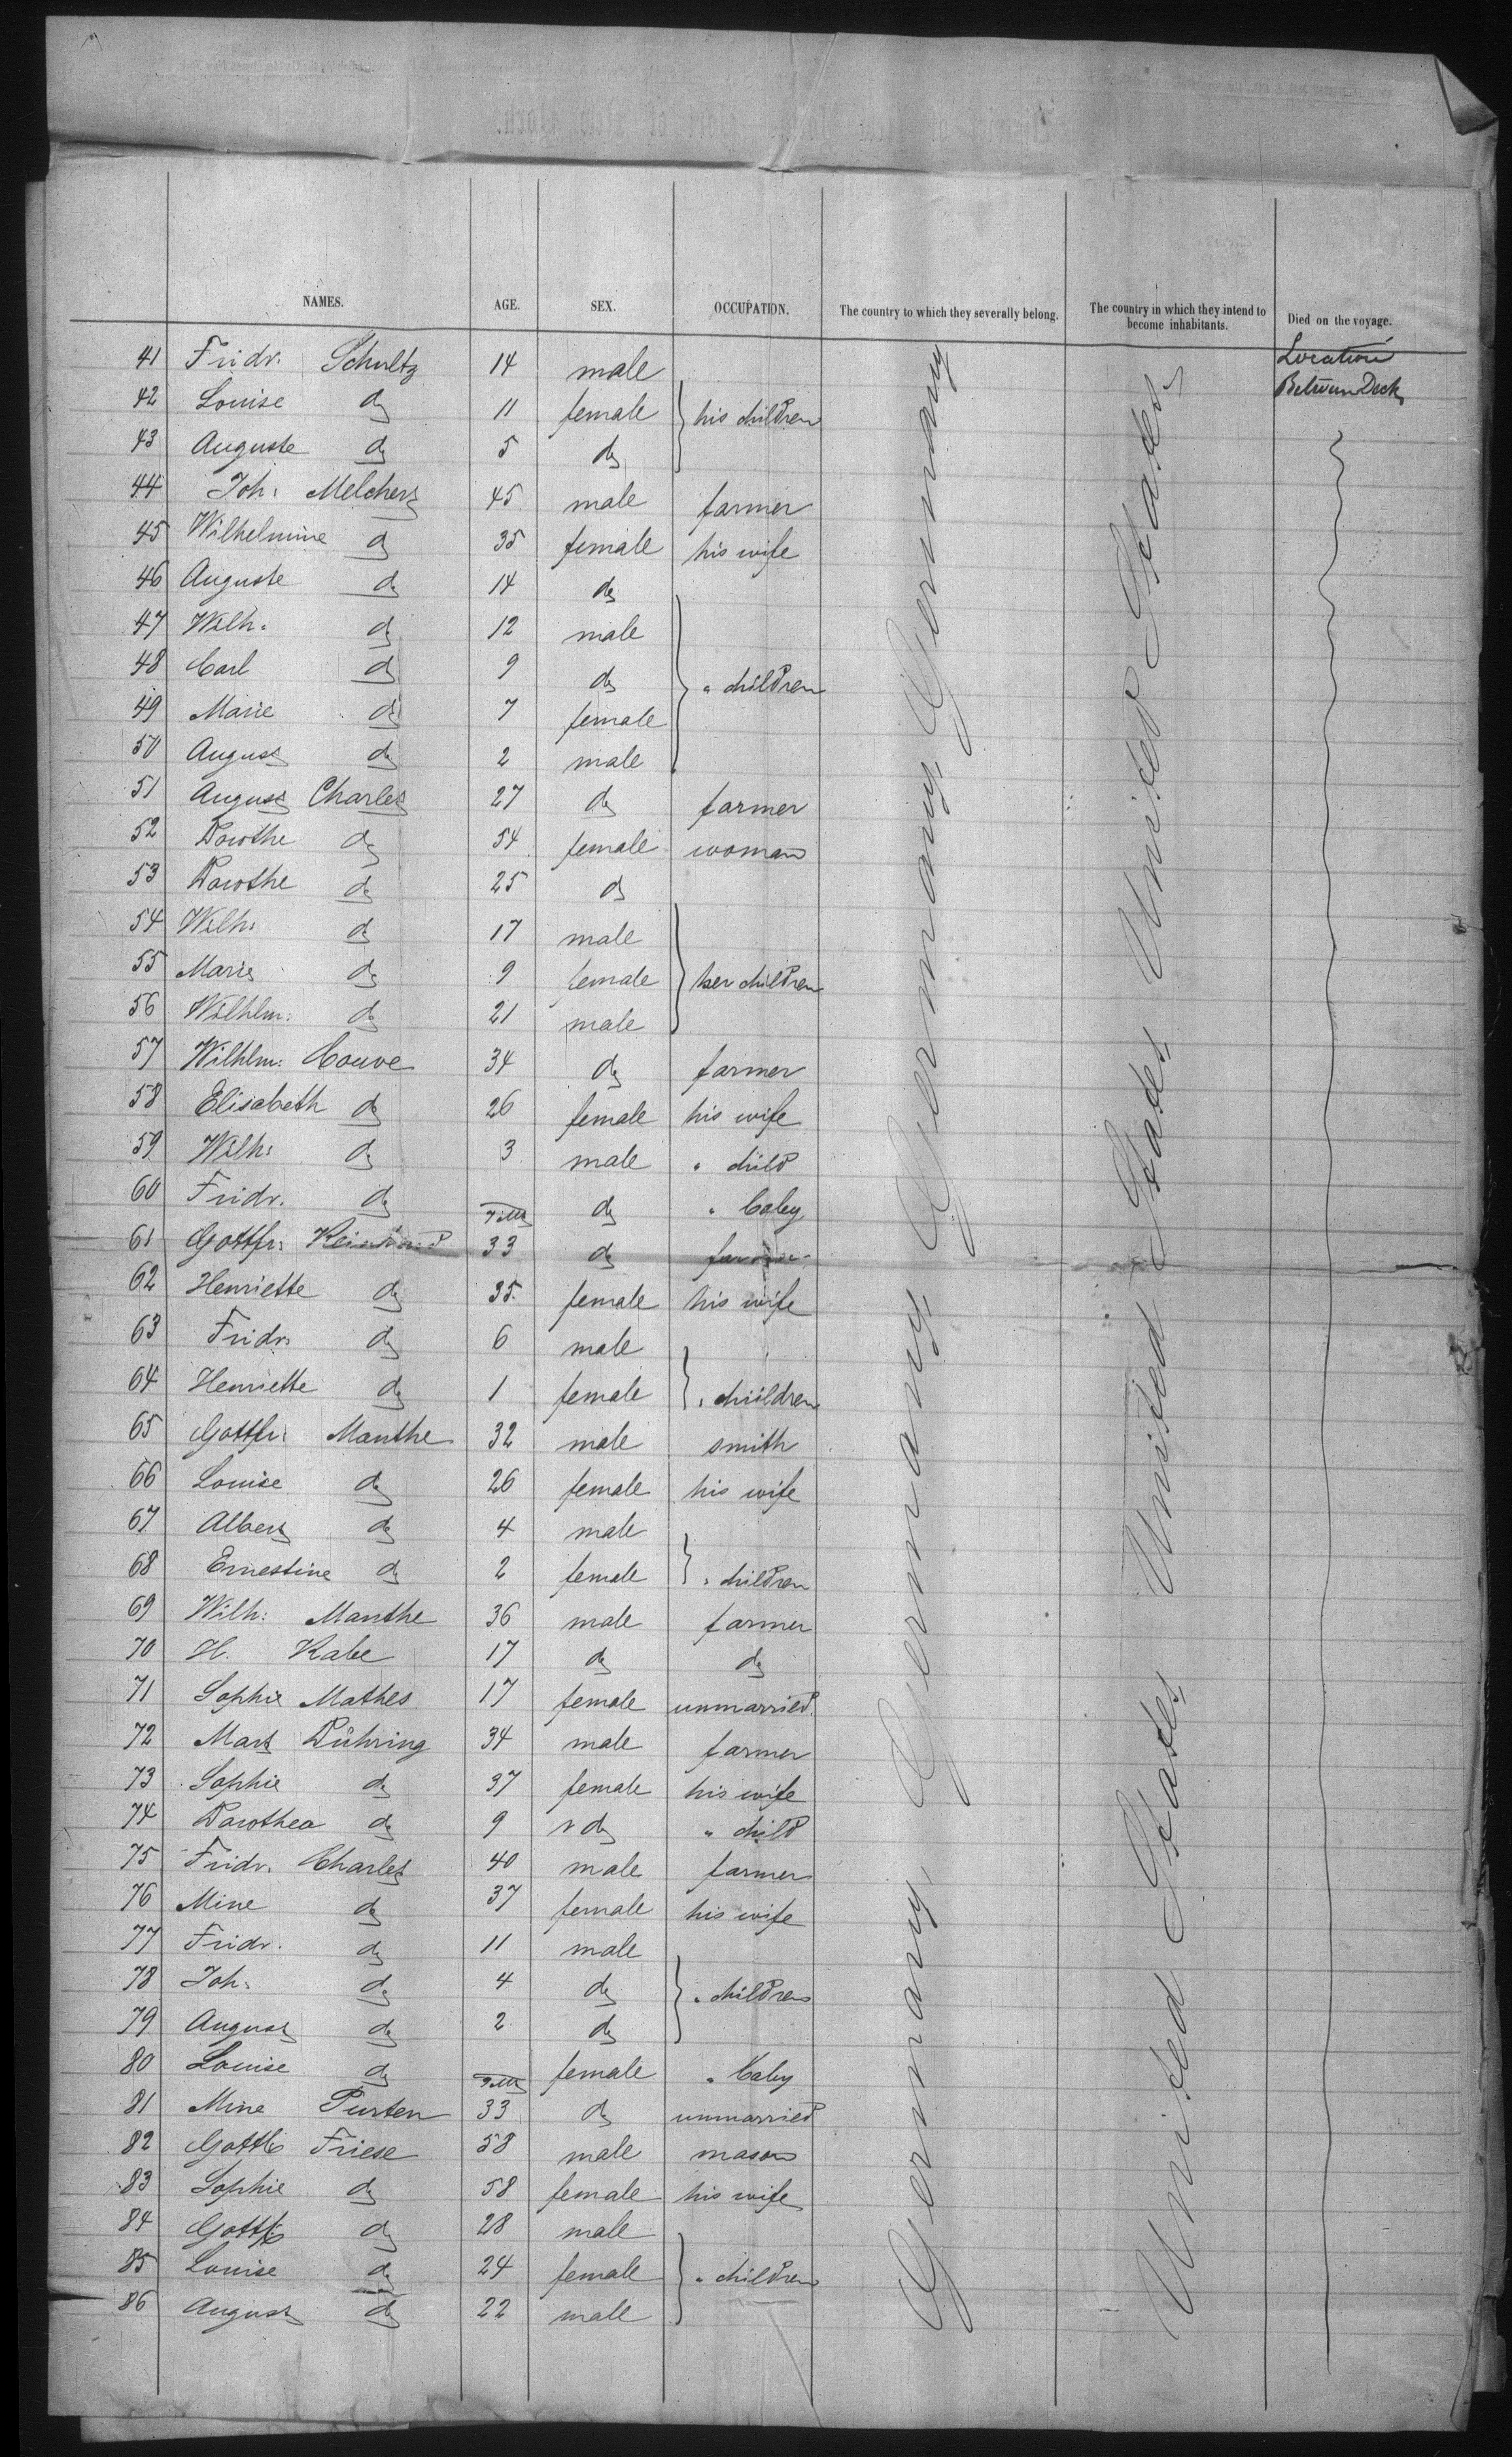 NAMES. AGE. SEX. OCCUPATION. The country to which they severally belong. The country in which they intend to become inhabitants. Died on the voyage.
Location
Between Deck
41 Fridr. Schultz 14 male
42 Louise do 11 female his children
43 Auguste do 5 do
44 Joh: Melchert 45 male farmer
45 Wilhelmine do 35 female his wife
46 Auguste do 14 do
47 Wilh. do 12 male
48 Carl do 9 do " children
49 Marie do 7 female
50 August do 2 male
51 August Charles 27 do farmer
52 Dorothe do 54 female woman
53 Dorothe do 25 do
54 Wilh: do 17 male
55 Marie do 9 female her children
56 Wilhlm: do 21 male
57 Wilhlm: Couve 34 do farmer
58 Elisabeth do 26 female his wife
59 Wilh: do 3 male " child
60 Fridr. do do " baby
61 Gottfr: 33 do farmer
62 Henriette do 35 female his wife
63 Fridr: do 6 male
64 Henriette do 1 female " children
65 Gottfr: Manthe 32 male smith
66 Louise do 26 female his wife
67 Albert do 4 male
68 Ernestine do 2 female " children
69 Wilh: Manthe 36 male farmer
70 H. Kabe 17 do do
71 Sophie Mathes 17 female unmarried
72 Mart Dühring 34 male farmer
73 Sophie do 37 female his wife
74 Dorothea do 9 do " child
75 Fridr. Charles 40 male farmer
76 Mine do 37 female his wife
77 Fridr. do 11 male
78 Joh: do 4 do " children
79 August do 2 do
80 Louise do female " baby
81 Mine Pursten 33 do unmarried
82 Gottlb Friese 58 male mason
83 Sophie do 58 female his wife
84 Gottfr do 28 male
85 Louise do 24 female " children
86 August do 22 male
Germany, Germany, Germany, Germany
United States United States United States